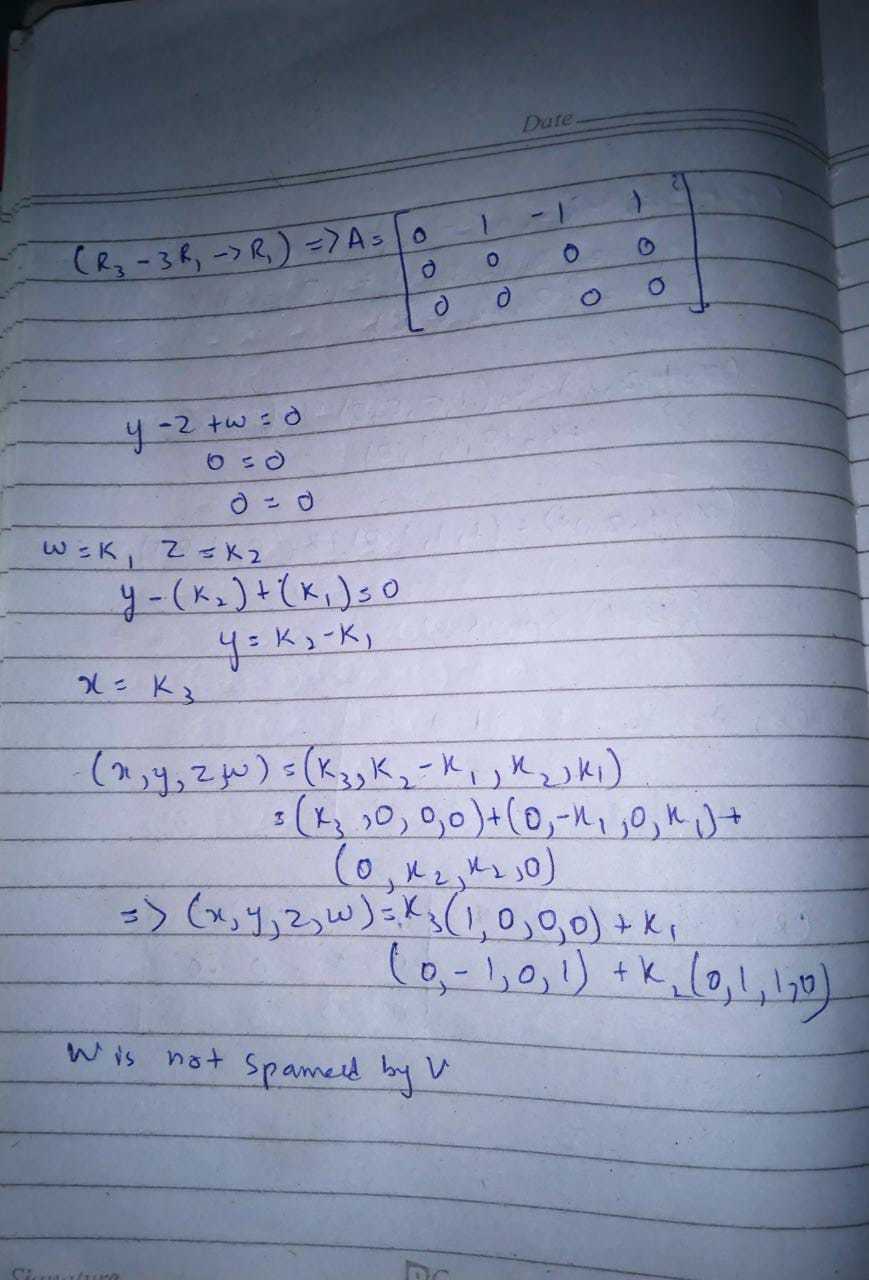 Date
(R₃ - 3R₁ -> R₁) => A = [0 1 -1 1
0 0 0 0
0 0 0 0]
y - z + w = 0
0 = 0
0 = 0
w = K₁ z = K₂
y - (K₂) + (K₁) = 0
y = K₂ - K₁
x = K₃
(x, y, z, w) = (K₃, K₂ - K₁, K₂, K₁)
= (K₃, 0, 0, 0) + (0, -K₁, 0, K₁) +
(0, K₂, K₂, 0)
=> (x, y, z, w) = K₃(1, 0, 0, 0) + K₁
(0, -1, 0, 1) + K₂(0, 1, 1, 0)
W is not spamed by V
Signature